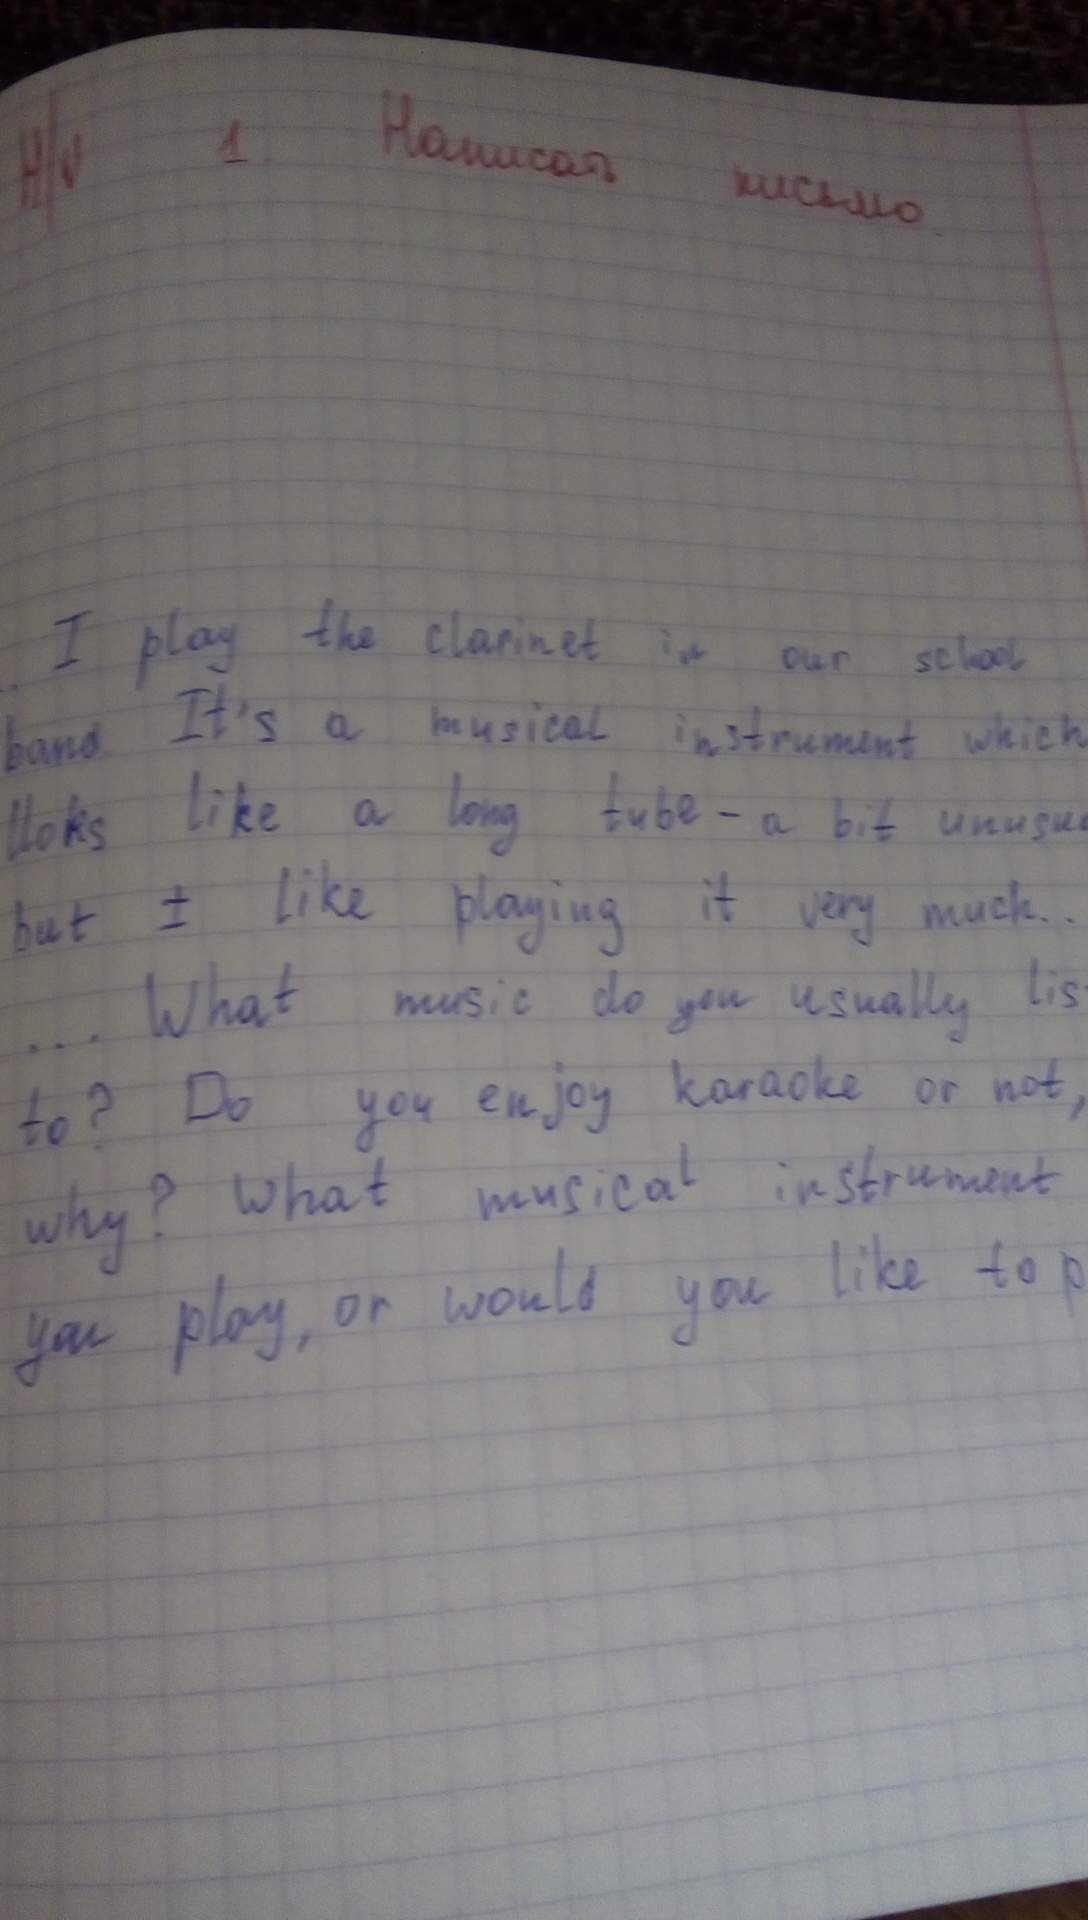 H/v 1. Написать письмо.
... I play the clarinet in our school
band. It's a musical instrument which
lloks like a long tube - a bit
but I like playing it very much...
... What music do you usually
to? Do you enjoy karaoke or not,
why? What musical instrument
you play, or would you like to